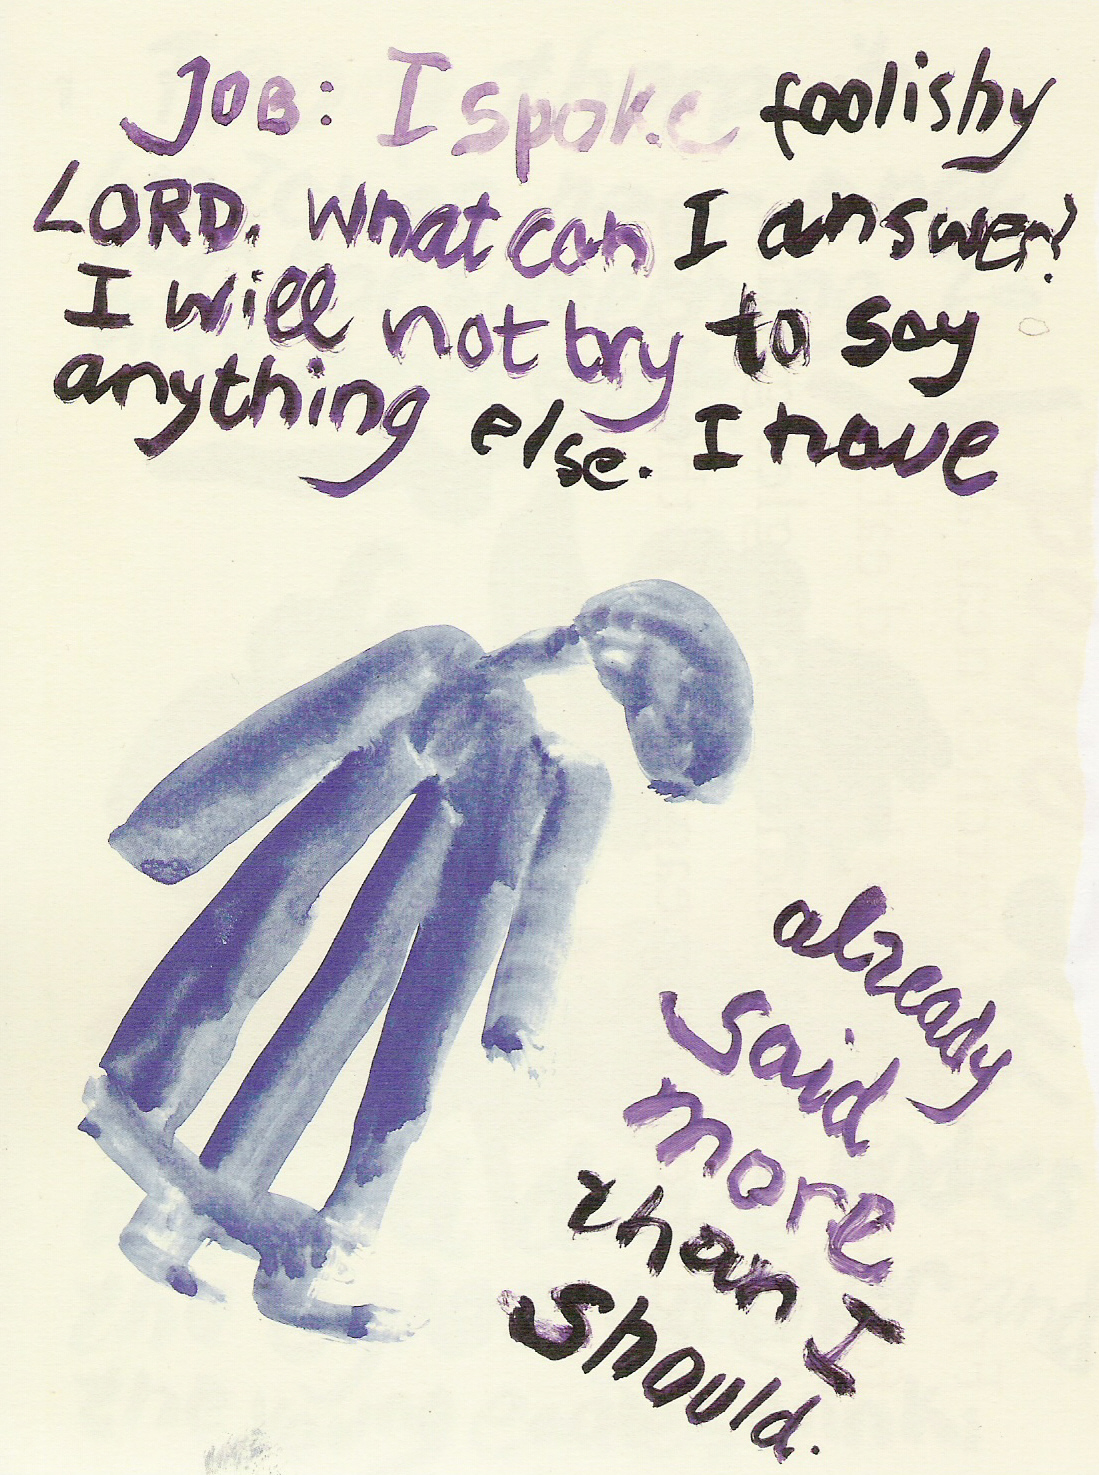 JOB: I spoke foolishy
LORD. What can I answer?
I will not try to say
anything else. I have
already
said
more
than I
should.